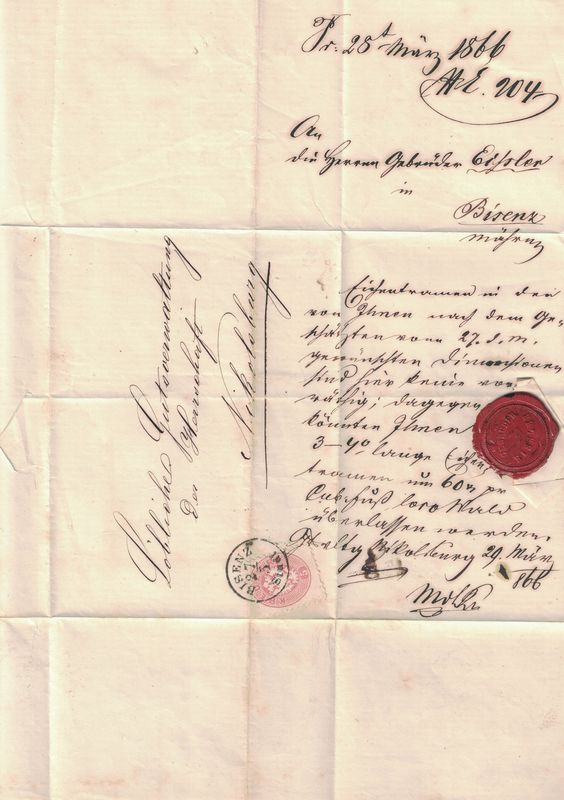 Pr. 28t März 1866
No E. 204
An
die Herren Gebrüder Eissler
in
Bisenz
Mähren
Eichentramen in den
von Ihnen nach dem Ge-
schätzten vom 27. d. M.
gewünschten Dimensionen
sind hier keine vor-
räthig; dagegen
könnten Ihnen
3–4° lange Eichen
tramen um 60 pr
Cub. Fuß loco Wald
überlassen werden.
Nikolsburg 29. März
866
Löbliche Gutsverwaltung
der Herrschaft
Nikolsburg
BISENZ
27